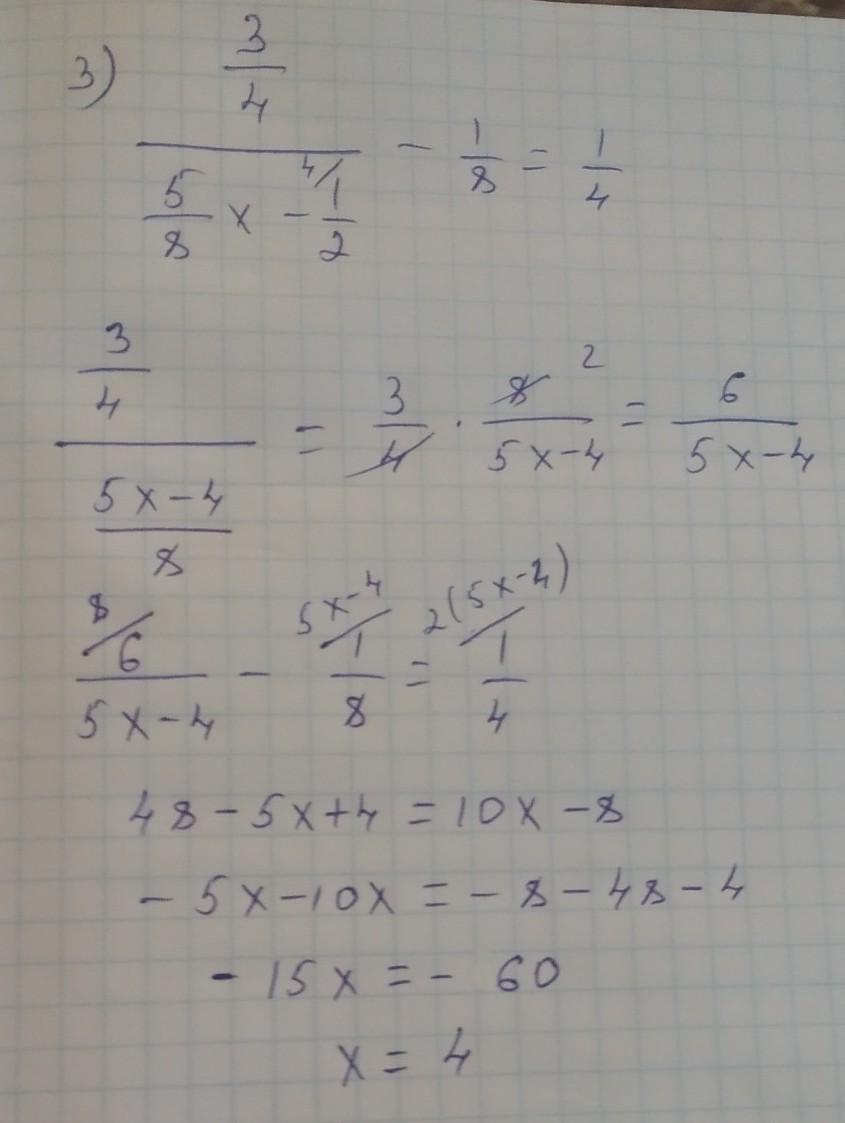 3) \frac{\frac{3}{4}}{\frac{5}{8}x - \overset{4/}{\frac{1}{2}}} - \frac{1}{8} = \frac{1}{4}
\frac{\frac{3}{4}}{\frac{5x-4}{8}} = \frac{3}{4} \cdot \frac{8 \; 2}{5x-4} = \frac{6}{5x-4}
\overset{8/}{\frac{6}{5x-4}} - \overset{5x-4/}{\frac{1}{8}} = \overset{2(5x-4)/}{\frac{1}{4}}
48 - 5x + 4 = 10x - 8
- 5x - 10x = - 8 - 48 - 4
- 15x = - 60
x = 4